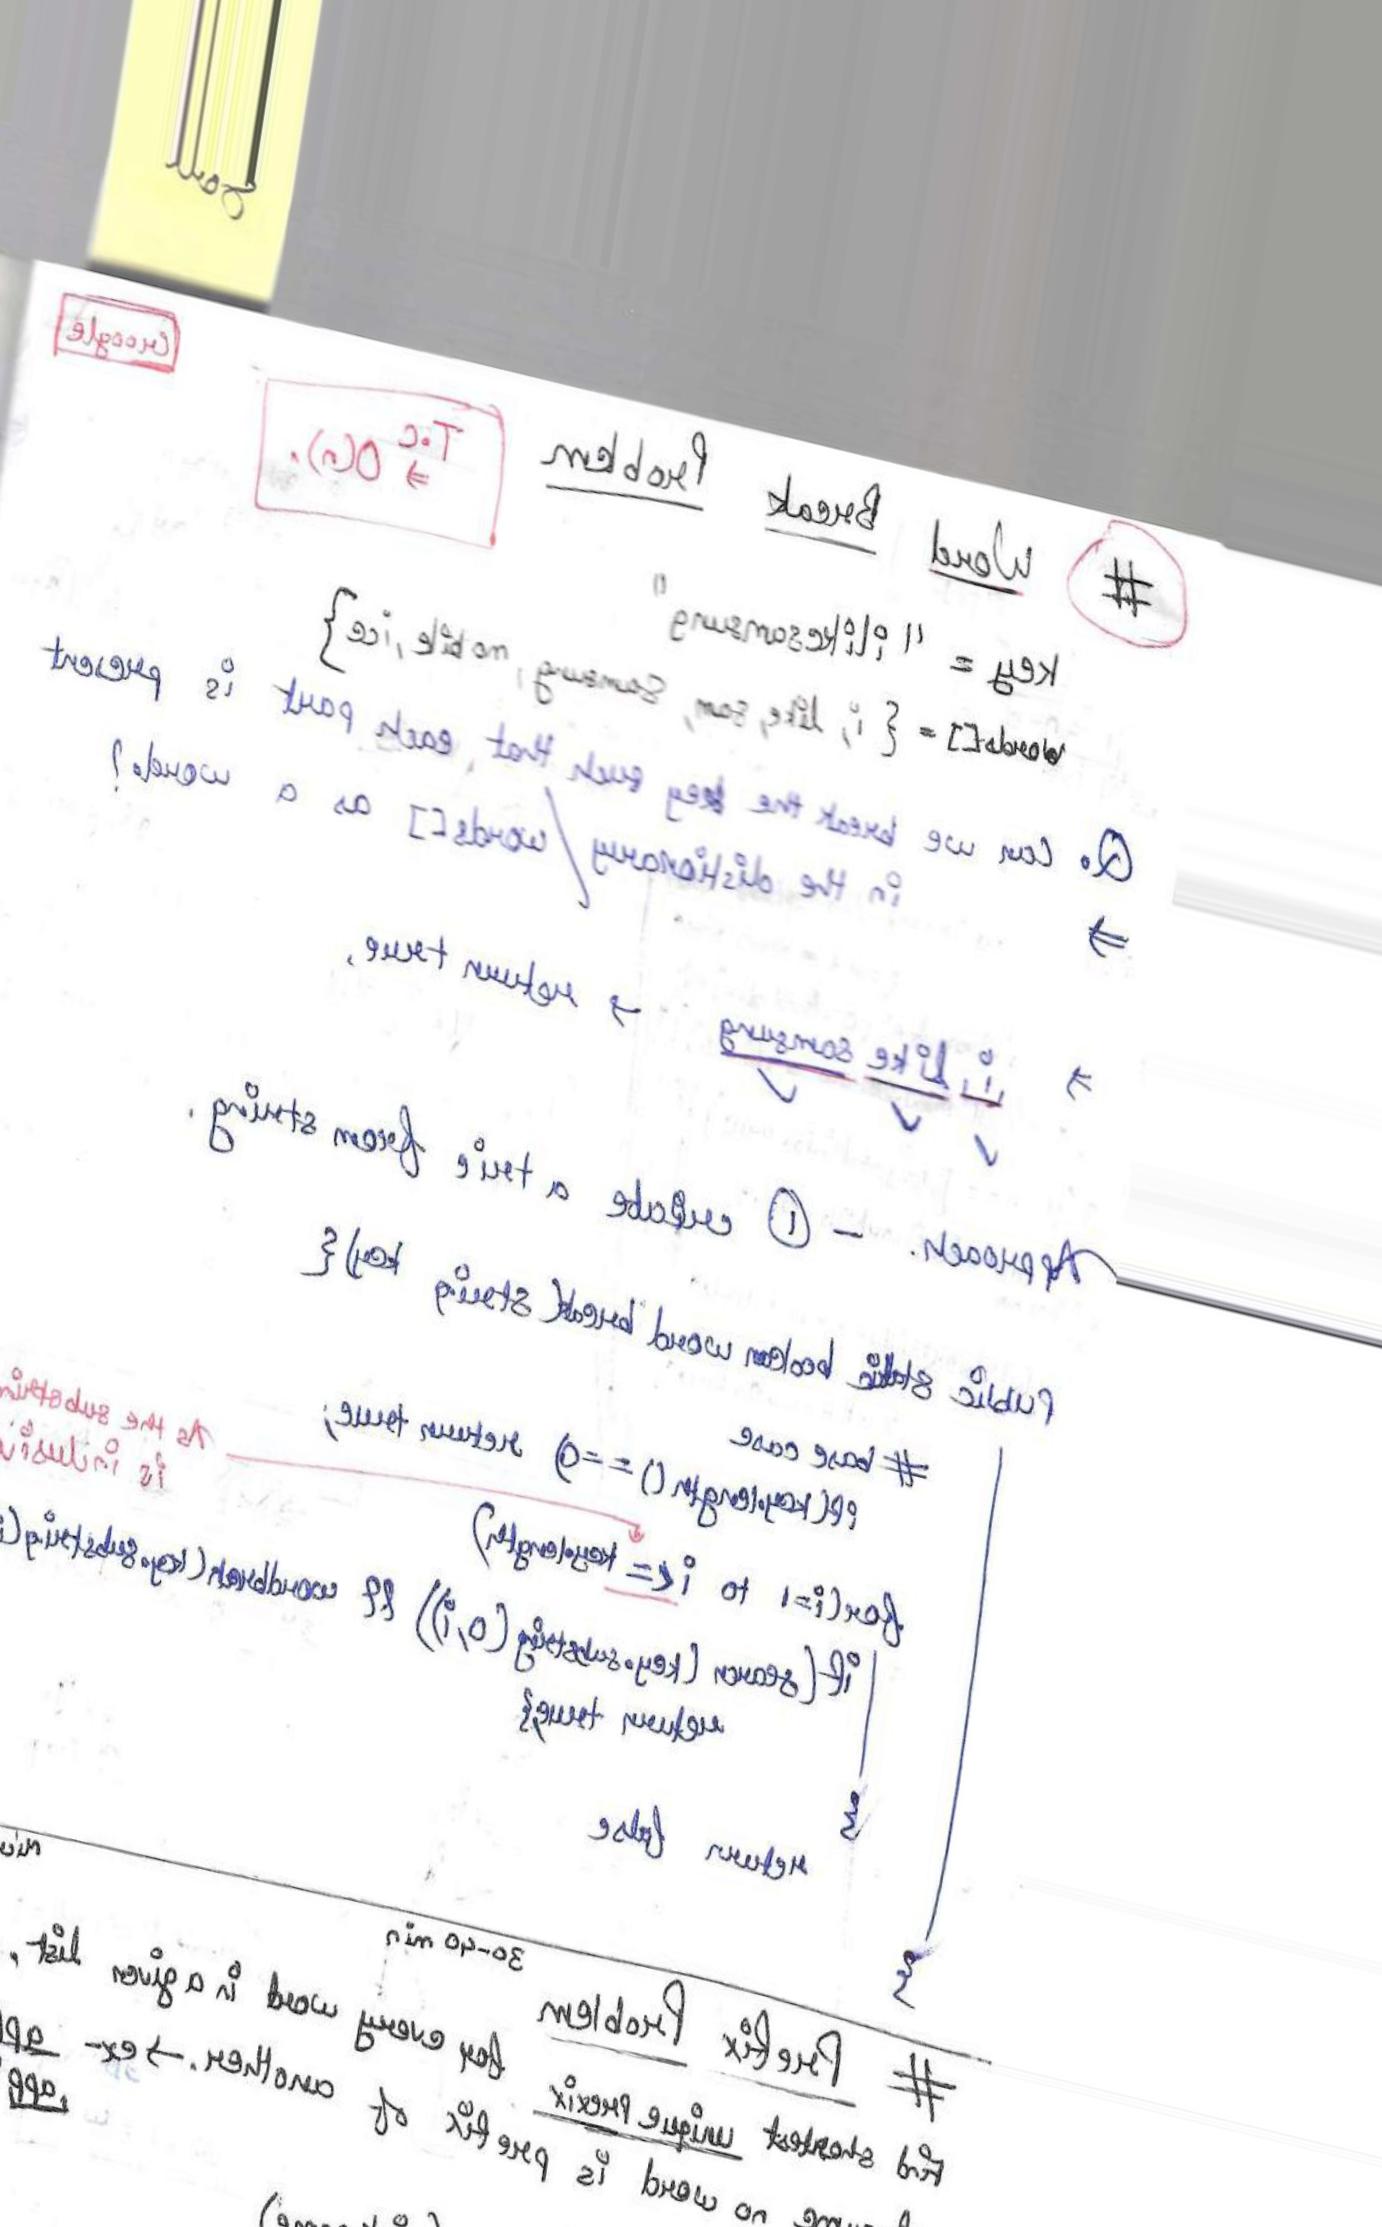 Google
# Word Break Problem
T.C
⇒ O(n).
key = "ilikesamsung"
words[] = { i, like, sam, Samsung, mobile, ice}
Q. Can we break the key such that each part is present
in the dictionary/words[] as a word?
⇒
→ i, like samsung → return true.
✓ ✓ ✓
Approach. - ① create a trie from string.
Public static boolean word break(string key){
# base case
if(key.length() == 0) return true;
As the substrin
is inclusiv
for(i=1 to i<= key.length)
if(search(key.substring(0,i)) && wordbreak(key.substring(i
return true;}
}
return false
}
30-40 min
# Prefix Problem
Find shortest unique prefix for every word in a given list.
no word is prefix of another. → ex-